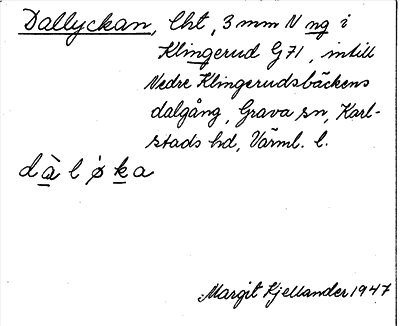 Dallyckan, lht, 3 mm N ng i
Klingerud G71, intill
Nedre Klingerudsbäckens
dalgång, Grava sn, Karl-
stads hd, Värml. l.
dàløka
Margit Kjellander 1947